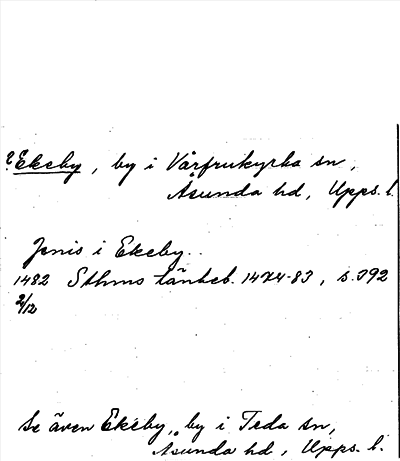 ? Ekeby, by i Vårfrukyrka sn,
Åsunda hd, Upps. l.
Jenis i Ekeby.
1482 Sthms tänkeb. 1474-83, s. 392
2/12
Se även Ekeby, by i Teda sn,
Åsunda hd, Upps. l.